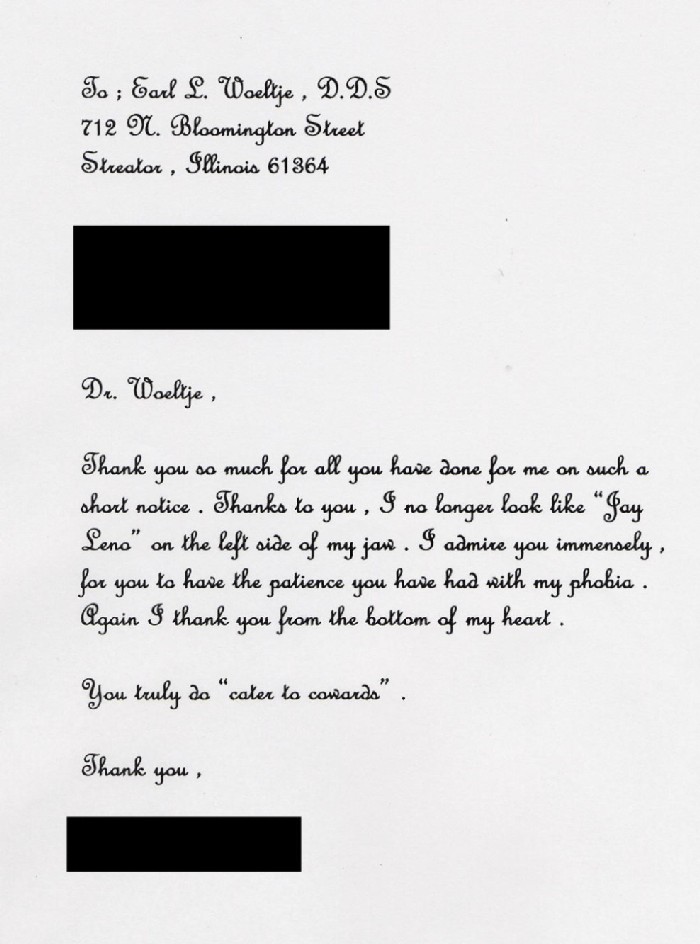 To ; Earl L. Woeltje , D.D.S
712 N. Bloomington Street
Streator , Illinois 61364
Dr. Woeltje ,
Thank you so much for all you have done for me on such a
short notice . Thanks to you , I no longer look like “Jay
Leno” on the left side of my jaw . I admire you immensely ,
for you to have the patience you have had with my phobia .
Again I thank you from the bottom of my heart .
You truly do “cater to cowards” .
Thank you ,